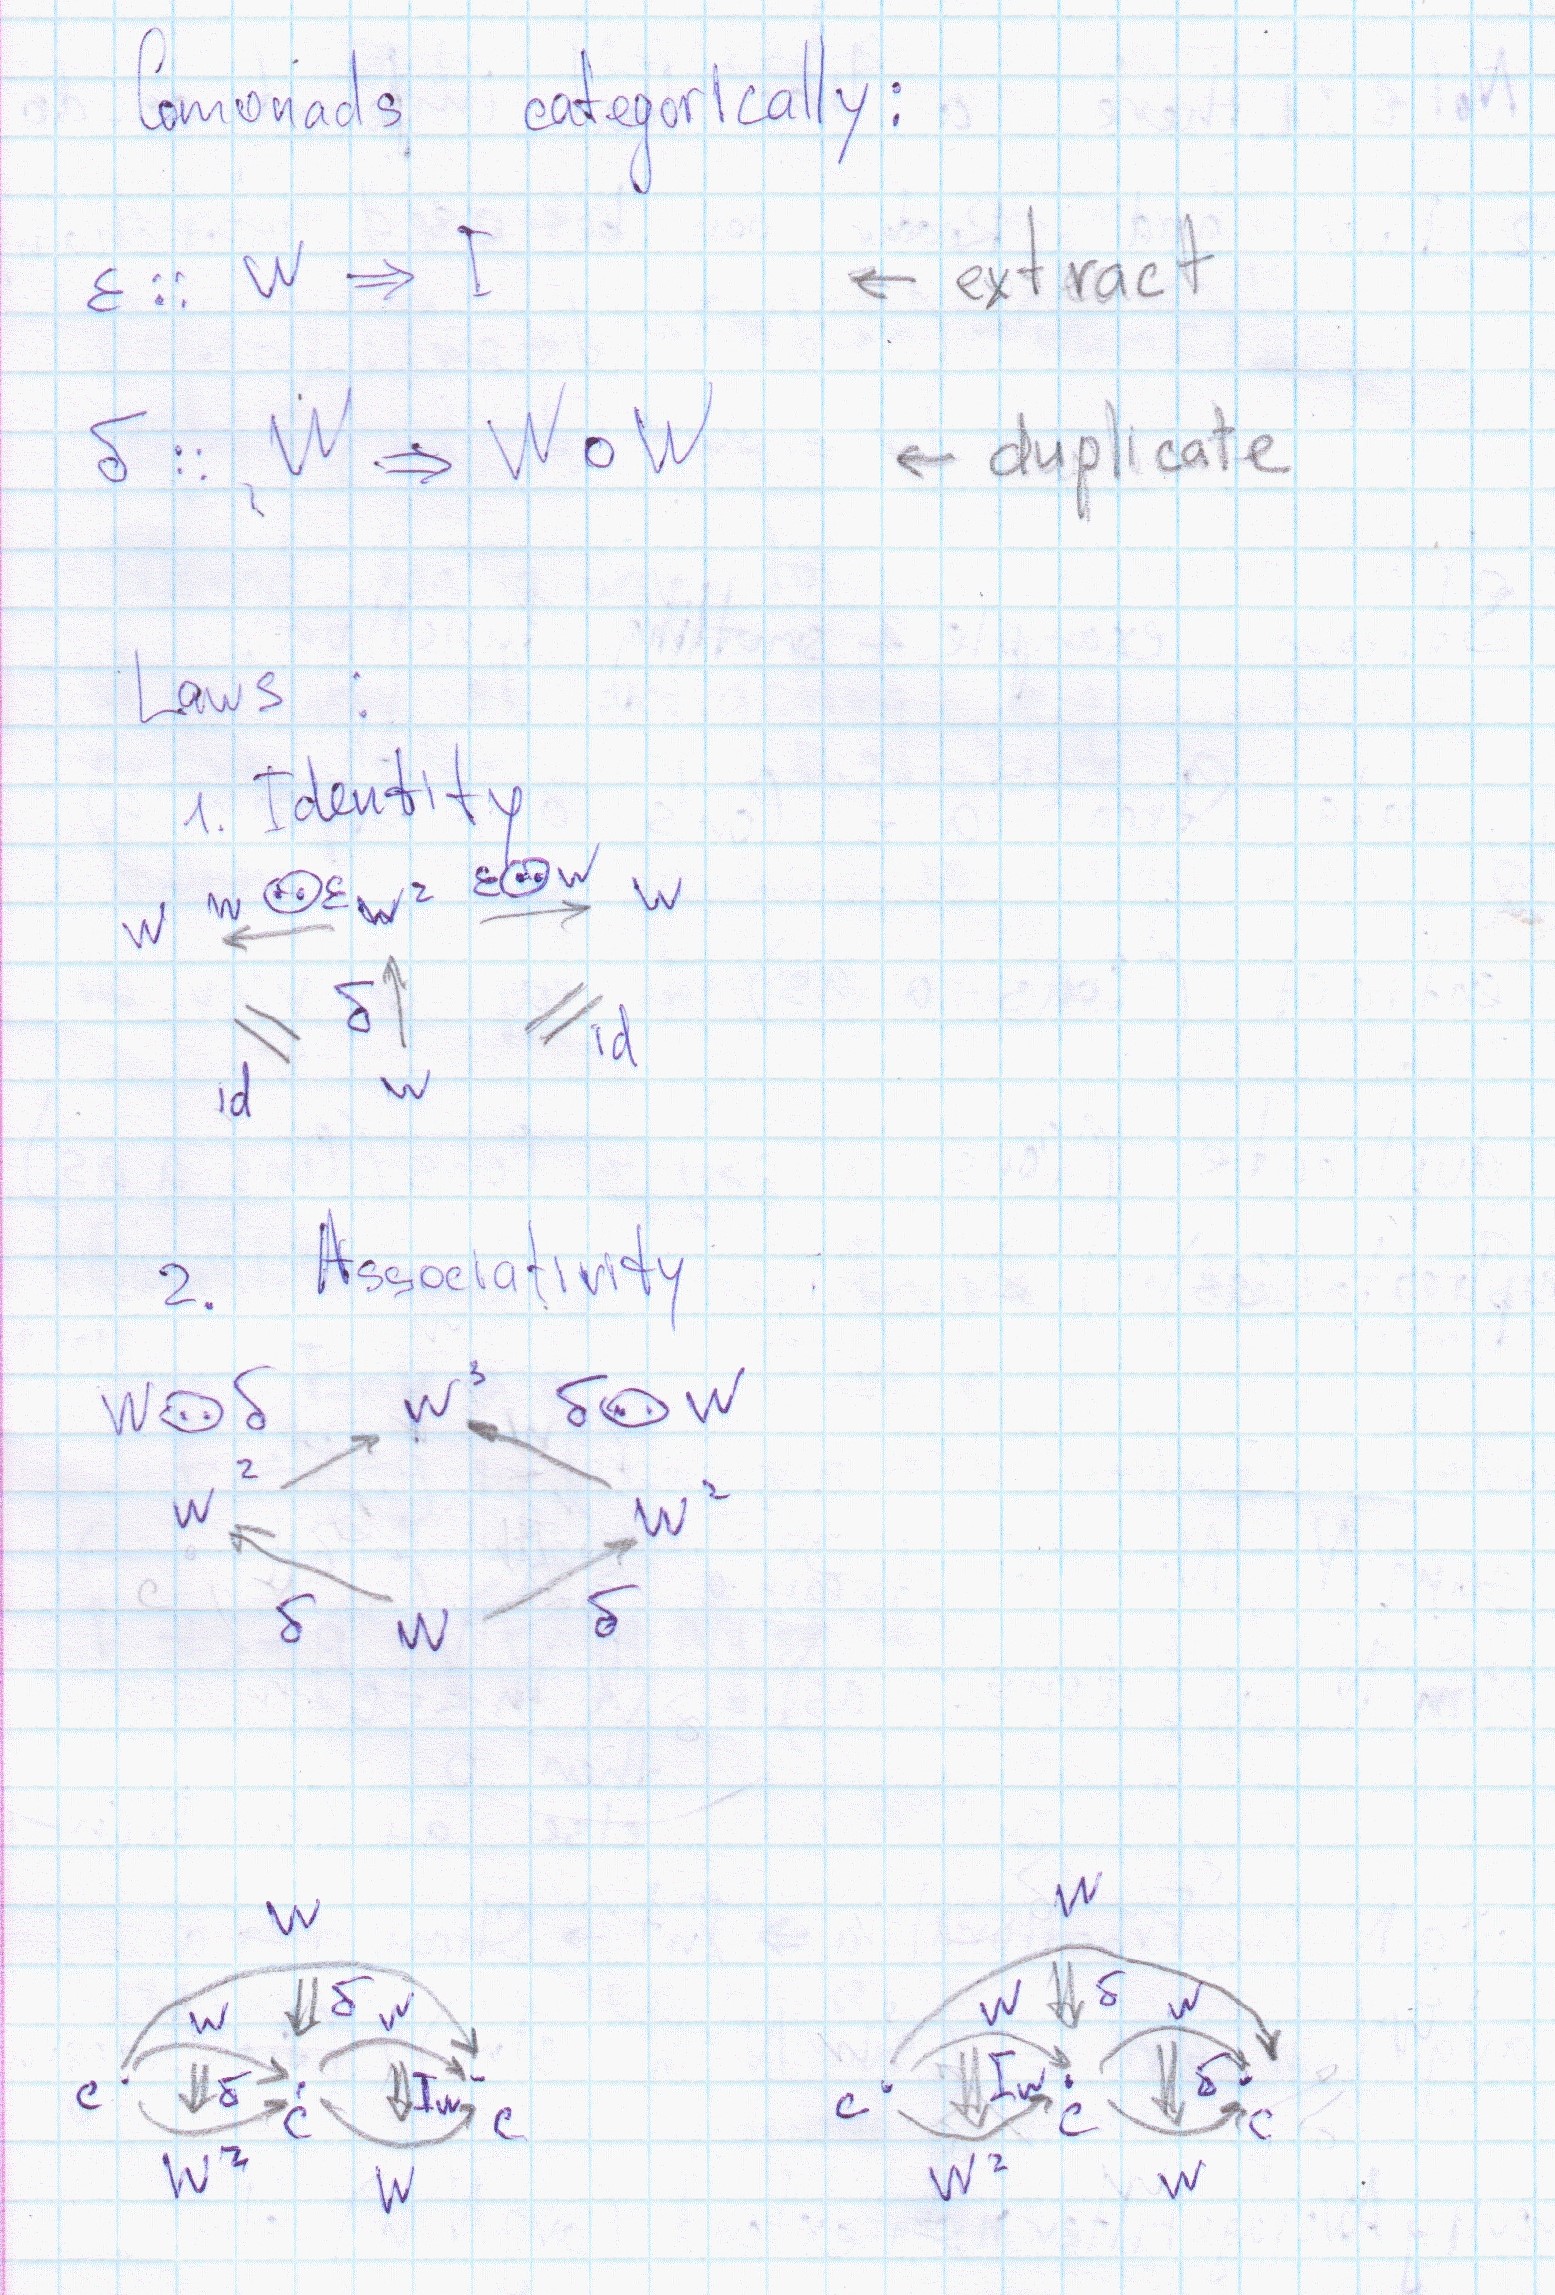 Comonads categorically:
ε :: W ⇒ I ← extract
δ :: W ⇒ W ∘ W ← duplicate
Laws :
1. Identity
W W ⊙ ε W² ε ⊙ W W
δ
id W id
2. Associativity
W ⊙ δ W³ δ ⊙ W
W² W²
δ W δ
W W
W δ W W δ W
C δ C I_W C C I_W C δ C
W² W W² W